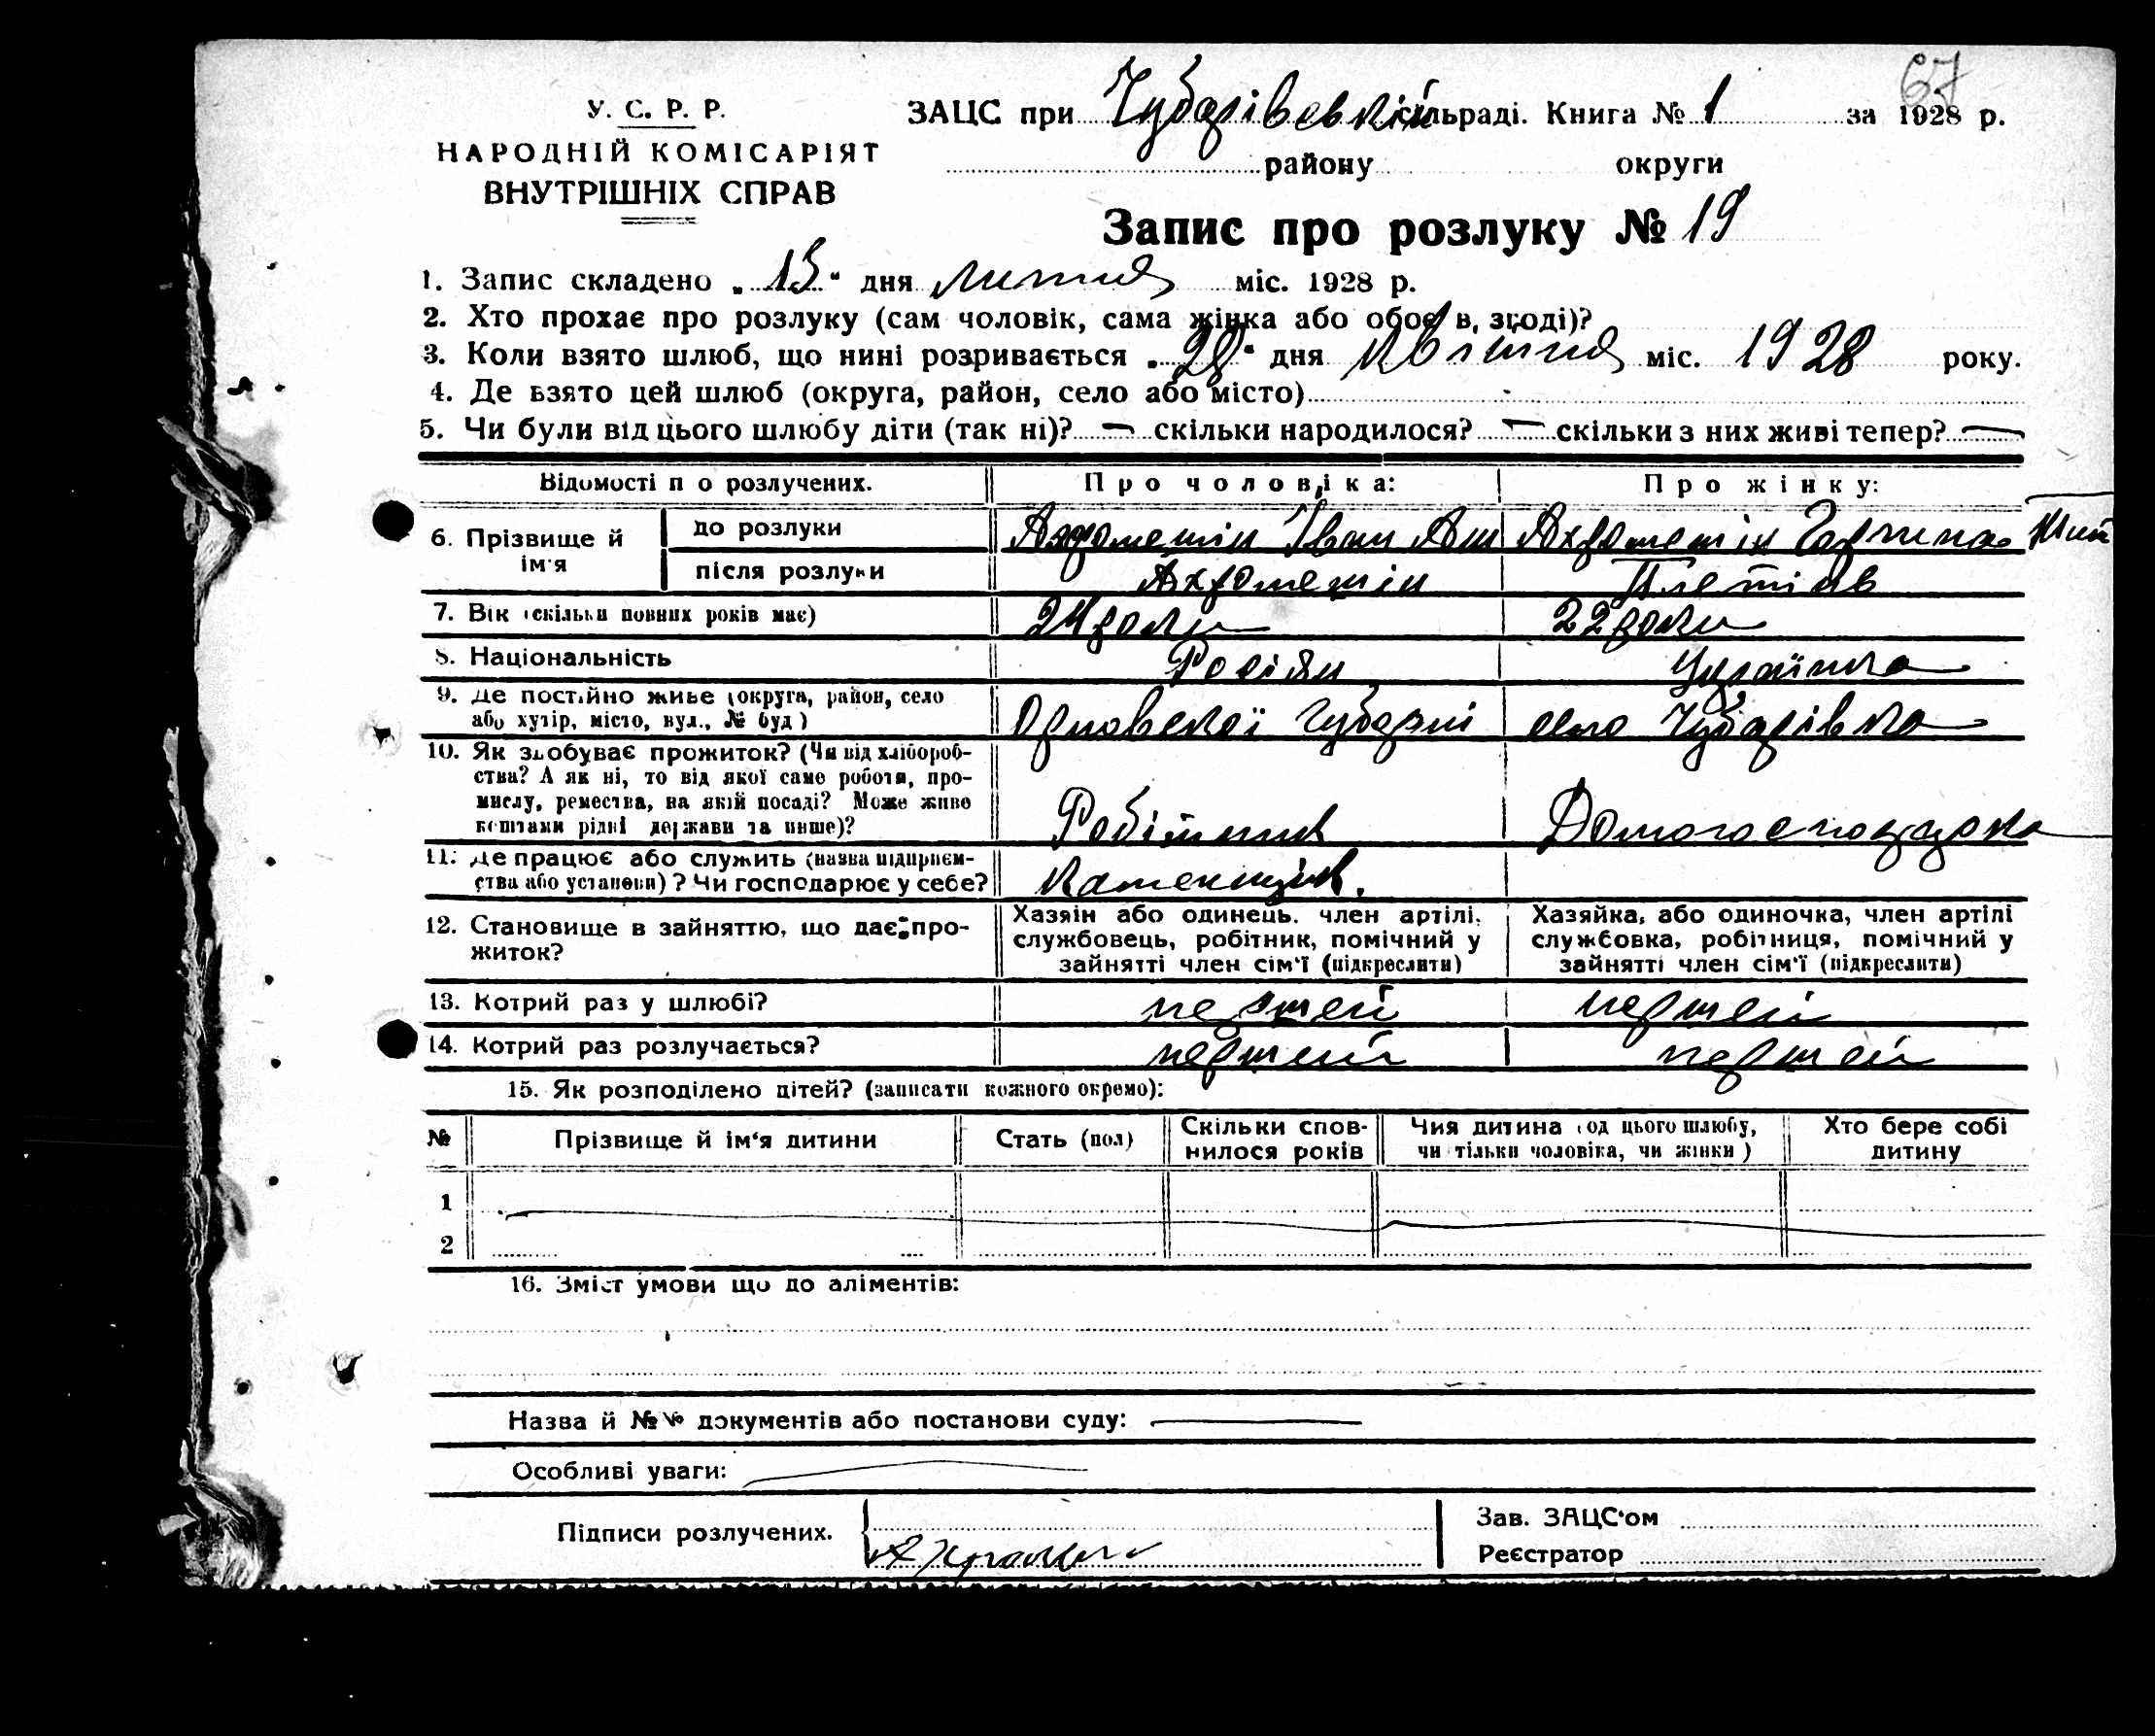 67
У. С. Р. Р.
НАРОДНІЙ КОМІСАРІЯТ
ВНУТРІШНІХ СПРАВ
ЗАЦС при Чубарівській сільраді. Книга № 1 за 1928 р.
району округи
Запис про розлуку № 19
1. Запис складено „ “ дня липня міс. 1928 р.
2. Хто прохає про розлуку (сам чоловік, сама жінка або обоє в згоді)?
3. Коли взято шлюб, що нині розривається „28“ дня квітня міс. 1928 року.
4. Де взято цей шлюб (округа, район, село або місто)
5. Чи були від цього шлюбу діти (так ні)? — скільки народилося? — скільки з них живі тепер? —
Відомості п о розлучених. Про чоловіка: Про жінку:
6. Прізвище й ім'я до розлуки Іван
після розлуки
7. Вік (скільки повних років має) 24 роки 22 роки
8. Національність Росіян Українка
9. Де постійно живе (округа, район, село або хутір, місто, вул., № буд) село Чубарівка
10. Як здобуває прожиток? (Чи від хлібороб-
ства? А як ні, то від якої саме роботи, про-
мислу, ремества, на якій посаді? Може живе
коштами рідні держави та инше)? Робітник
11. Де працює або служить (назва підприєм-
ства або установи)? Чи господарює у себе? Каменщик.
12. Становище в зайняттю, що дає про-
житок?
Хазяін або одинець. член артілі,
службовець, робітник, помічний у
зайнятті член сім'ї (підкреслити)
Хазяйка, або одиночка, член артілі
службовка, робітниця, помічний у
зайнятті член сім'ї (підкреслити)
13. Котрий раз у шлюбі? першей першей
14. Котрий раз розлучається? першей першей
15. Як розподілено дітей? (записати кожного окремо):
№ Прізвище й ім'я дитини Стать (пол) Скільки спов-
нилося років Чия дитина (од цього шлюбу,
чи тільки чоловіка, чи жінки) Хто бере собі
дитину
1
2
16. Зміст умови що до аліментів:
Назва й №№ документів або постанови суду: —
Особливі уваги: —
Підписи розлучених.
Зав. ЗАЦС'ом
Реєстратор